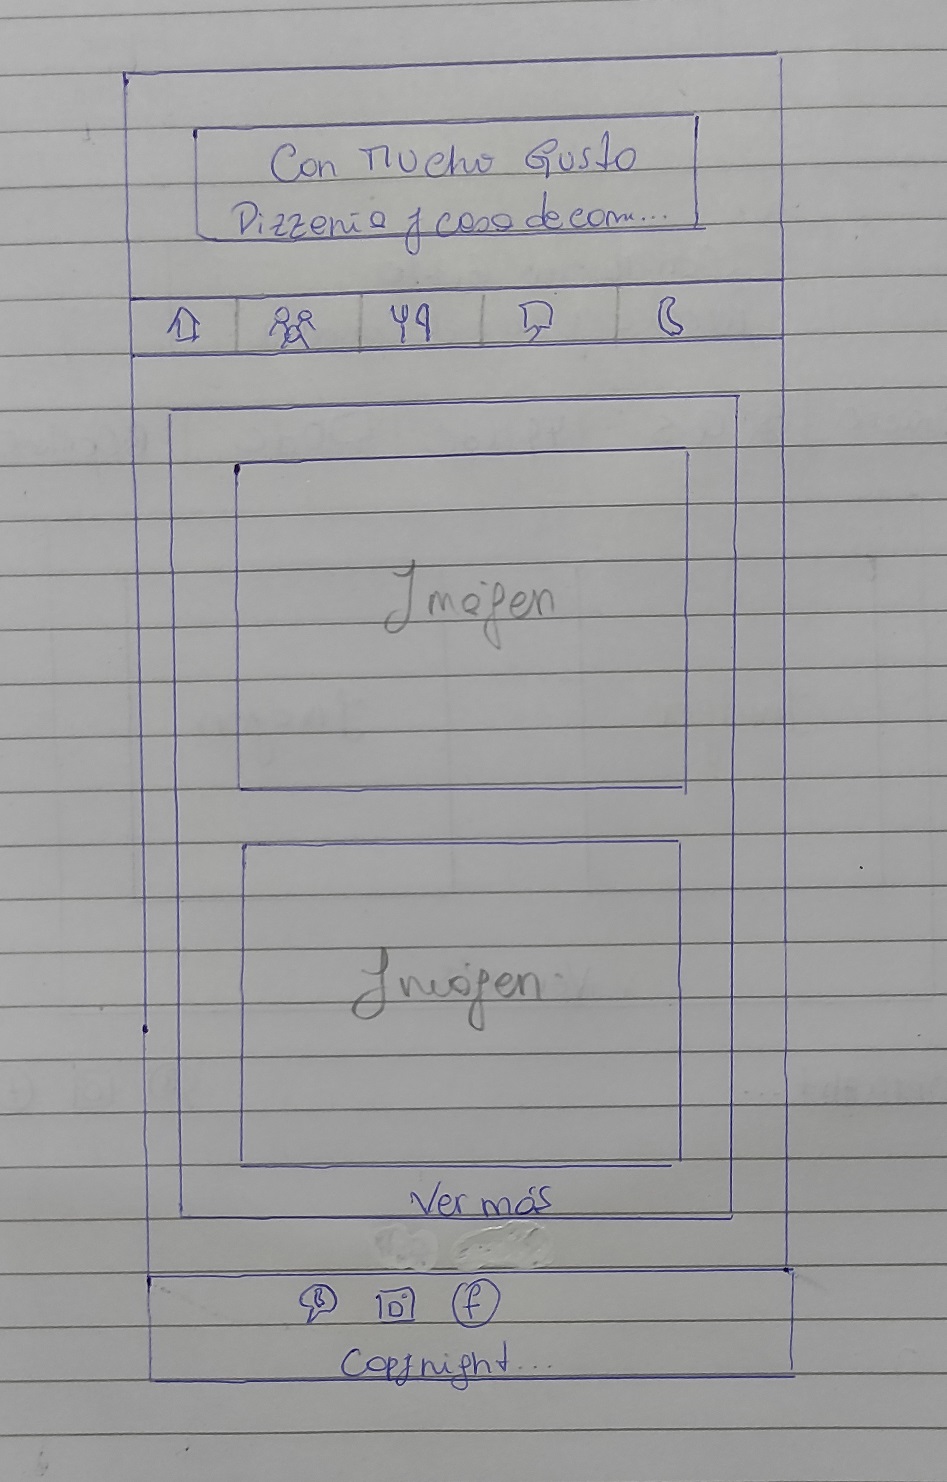 Con Mucho Gusto
Pizzeria y casa de com...
Imágen
Imágen
Ver más
Copyright...